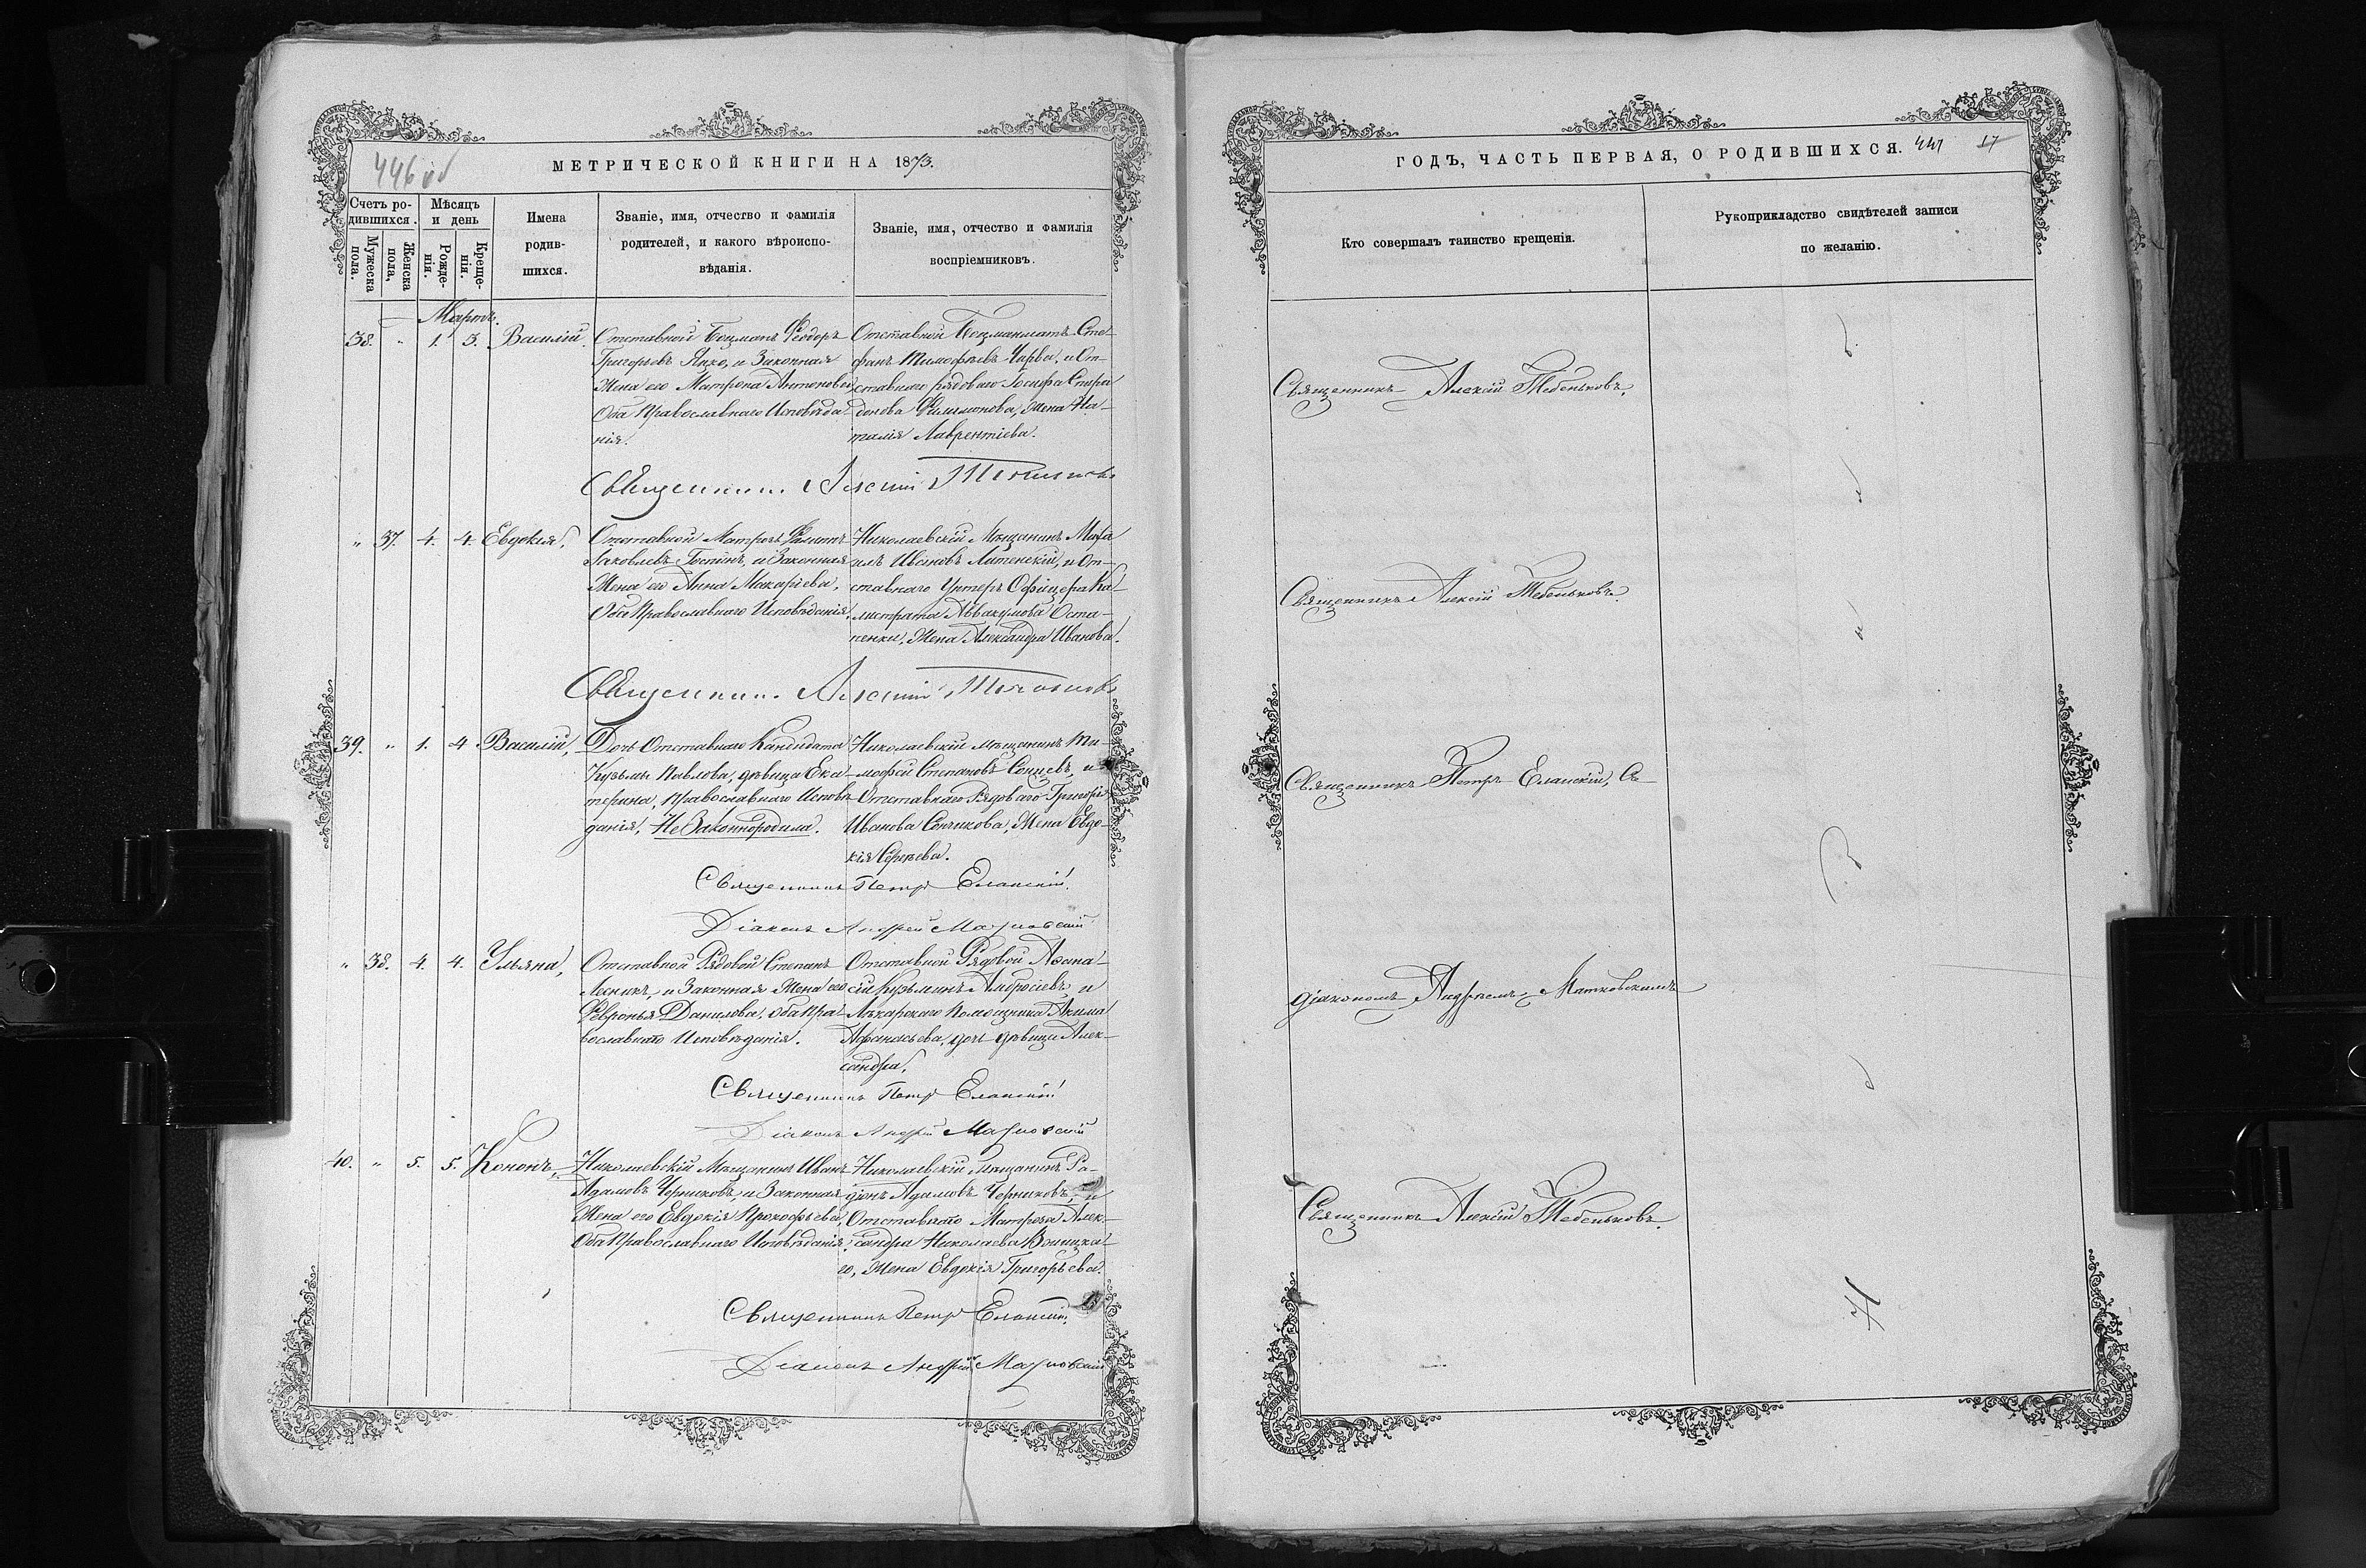 446 об
МЕТРИЧЕСКОЙ КНИГИ НА 1873.
Счетъ ро-
дившихся.
Мужеска
пола.
Женска
пола,
Мѣсяцъ
и день
Рожде-
нія.
Креще-
нія.
Имена
родив-
шихся.
Званіе, имя, отчество и фамилія
родителей, и какого вѣроиспо-
вѣданія.
Званіе, имя, отчество и фамилія
воспріемниковъ.
Мартъ.
38. " 1. 3. Василій.
Отставной Боцманъ Ѳеодоръ
Григорьевъ и Законная
Жена его Матрона Антонова
Оба Православнаго Исповѣда-
нія.
Отставной Боцманматъ Сте-
фанъ Тимофѣевъ Чарва, и От-
ставнаго рядоваго Іосифа Спири
донова Филимонова, Жена На-
талія Лаврентіева.
Священникъ Алексій Тебеньковъ
" 37. 4. 4. Евдокія,
Отставной Матрозъ Филипъ
Яковлевъ и Законная
Жена его Анна Макаріева,
Оба Православнаго Исповѣданія.
Николаевскій Мѣщанинъ Миха
илъ Ивановъ Литенскій, и От-
ставнаго Унтеръ Офицера Ка-
листрата Аввакумова Оста-
пенки, Жена Александра Иванова.
Священникъ Алексій Тебеньковъ
39. " 1. 4 Василій,
Дочь Отставнаго Кандидата
Кузьмы Павлова, дѣвица Ека-
терина, Православнаго Исповѣ
данія, Не Законнородила.
Николаевскій мѣщанинъ Ти-
мофей Степановъ и
Отставнаго Рядоваго Григорія
Иванова Жена Евдо-
кія Сергѣева.
Священникъ Петръ Еланскій.
Діаконъ Андрей Матковскій
" 38. 4. 4. Ульяна,
Отставной Рядовой Степанъ
и Законная Жена его
Февронья Данилова, оба Пра-
вославнаго Исповѣданія.
Отставной Рядовой Аѳана-
сій Кузьминъ Амбросіевъ и
Лѣкарскаго Помощника Акима
Афанасьева, дочь дѣвица Алек-
сандра,
Священникъ Петръ Еланскій
Діаконъ Андрей Матковскій
40. " 5. 5. Кононъ,
Николаевскій Мѣщанинъ Иванъ
Адамовъ Черниковъ, и Законная
Жена его Евдокія Прокофьева
Оба Православнаго Исповѣданія.
Николаевскій мѣщанинъ Ра-
діонъ Адамовъ Черниковъ, и
Отставнаго Матроза Алек-
сандра Николаева
го, Жена Евдокія Григорьева.
Священникъ Петръ Еланскій.
Діаконъ Андрей Матковскій
ГОДЪ, ЧАСТЬ ПЕРВАЯ, О РОДИВШИХСЯ. 447 17
Кто совершалъ таинство крещенія.
Рукоприкладство свидѣтелей записи
по желанію.
Священникъ Алексій Тебеньковъ.
Священникъ Алексій Тебеньковъ.
Священникъ Петръ Еланскій, Съ
діакономъ Андреемъ Матковскимъ
Священникъ Алексій Тебеньковъ.